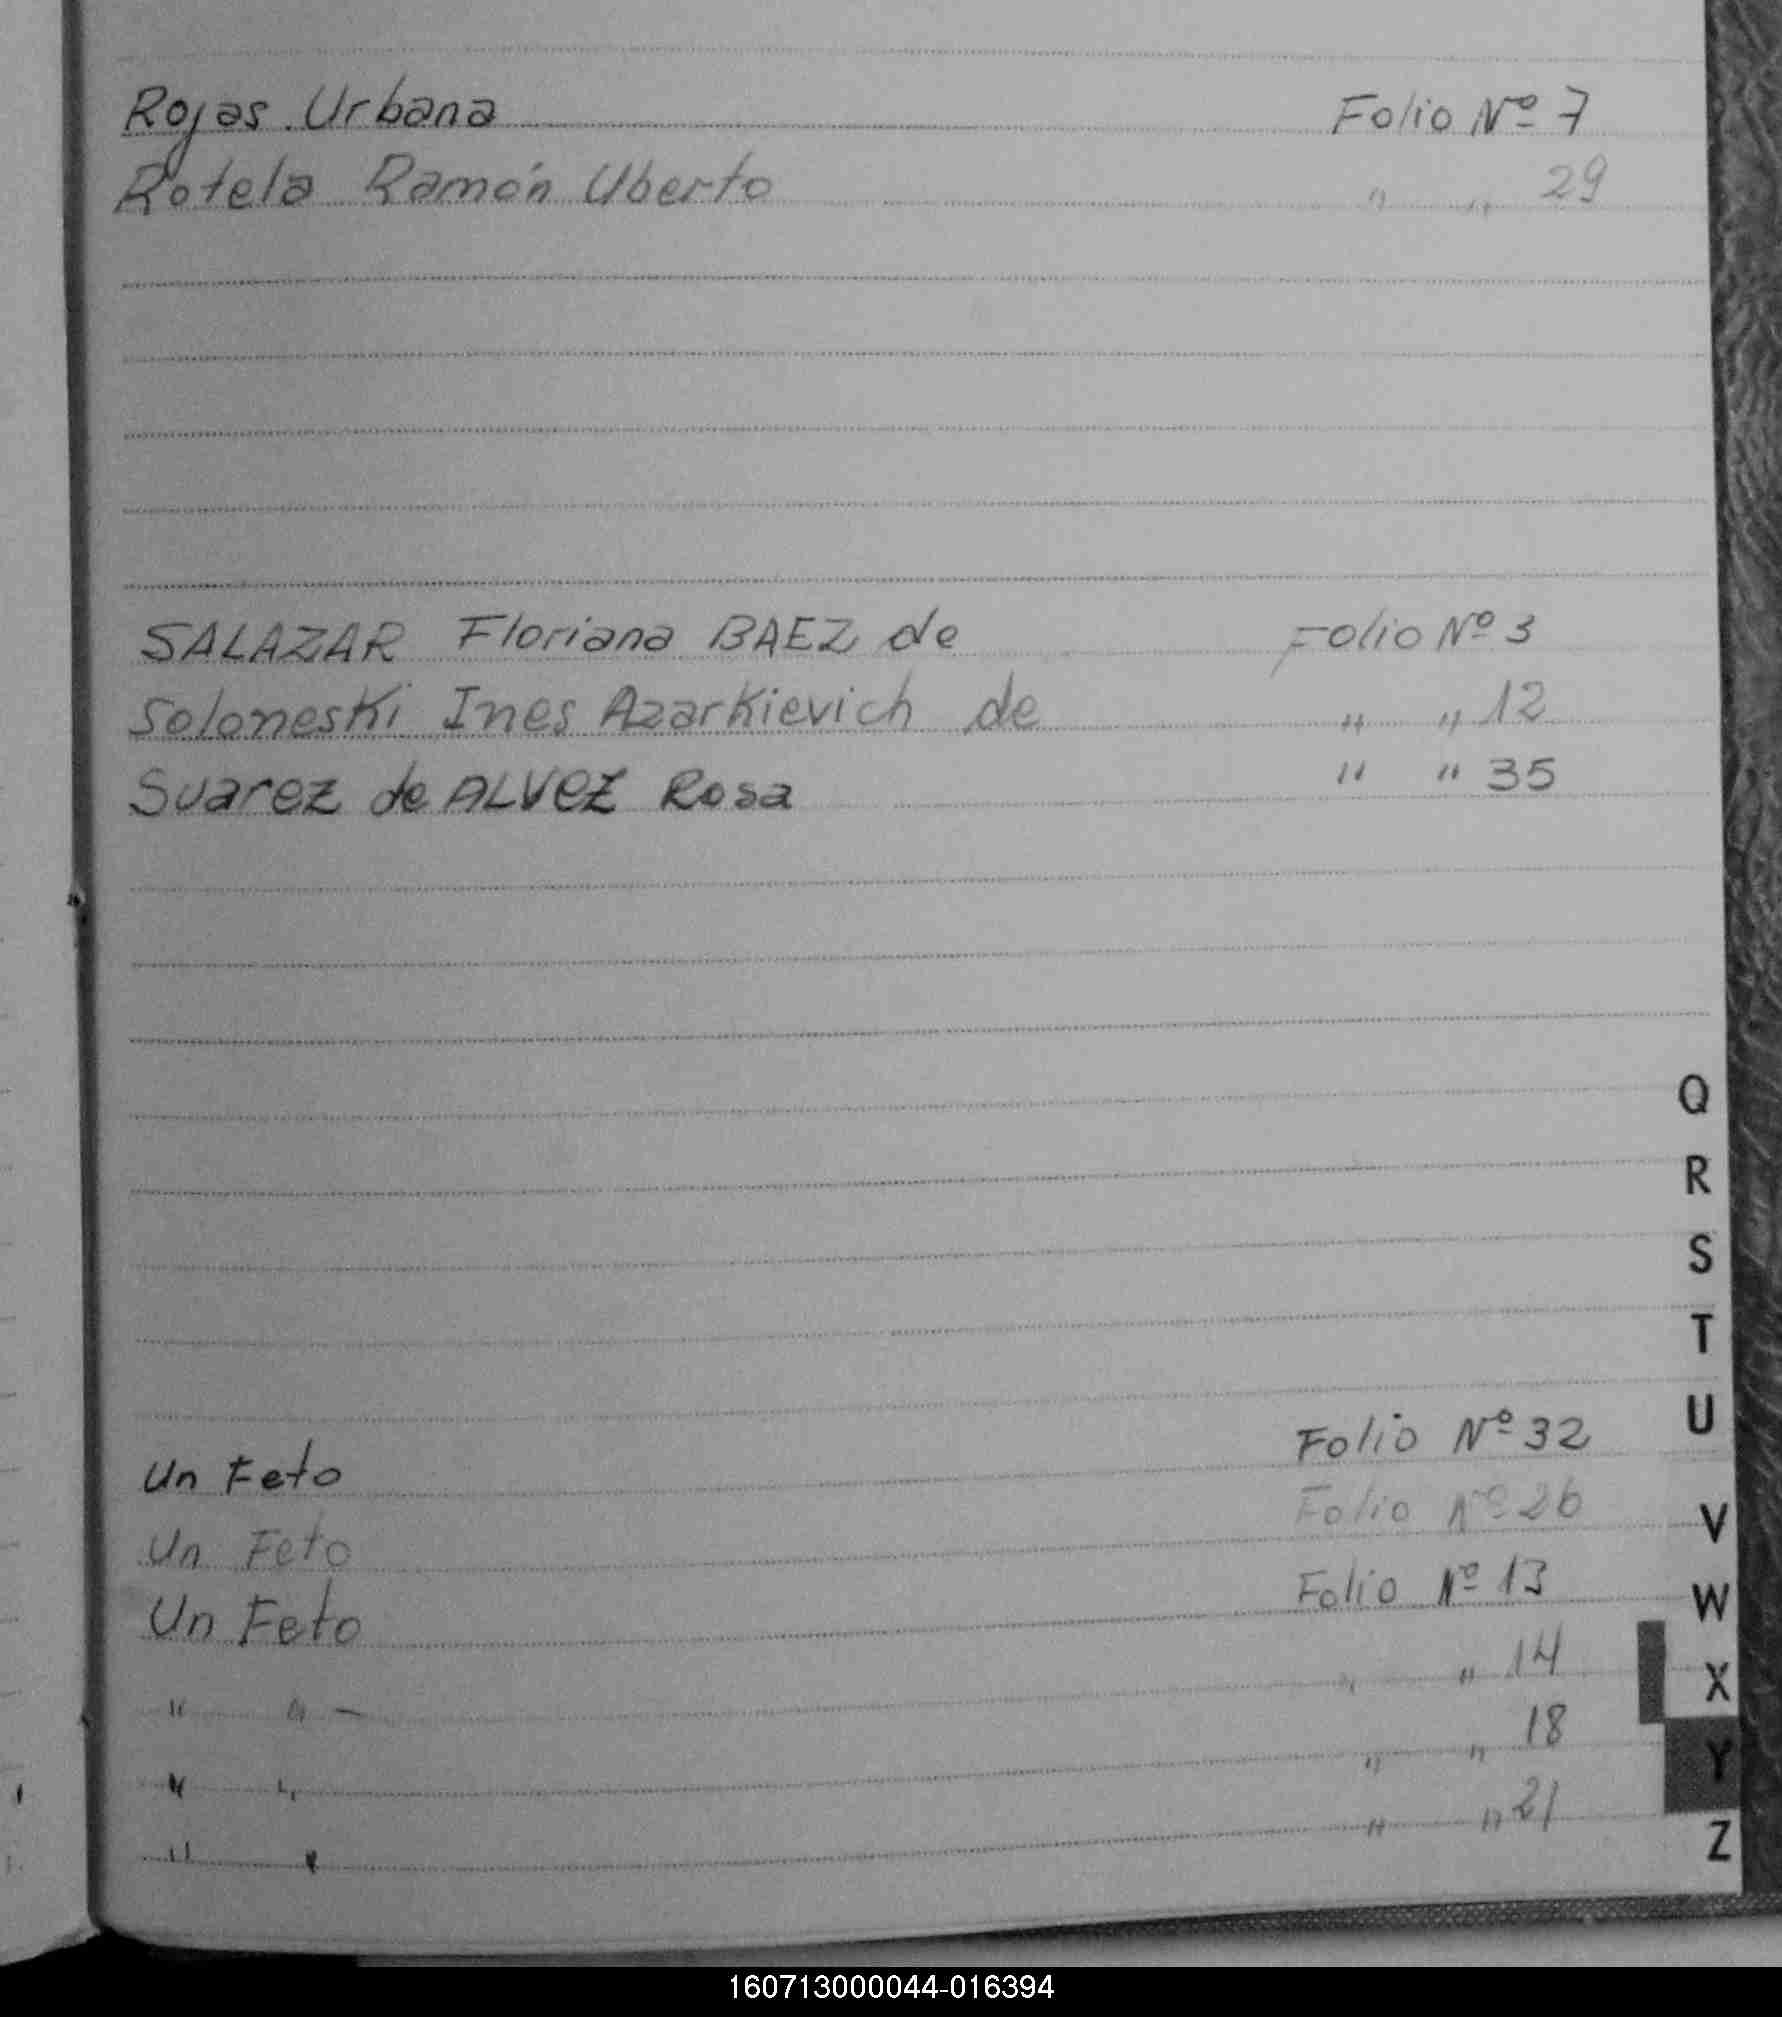 Rojas Urbana Folio Nº 7
Rotela Ramón Uberto " " 29
SALAZAR Floriana BAEZ de Folio Nº 3
Soloneski Ines Azarkievich de " " 12
Suarez de ALVEZ Rosa " " 35
Un Feto Folio Nº 32
Un Feto Folio Nº 26
Un Feto Folio Nº 13
" " - " " 14
" " " " 18
" " " " 21
Q
R
S
T
U
V
W
X
Y
Z
160713000044-016394